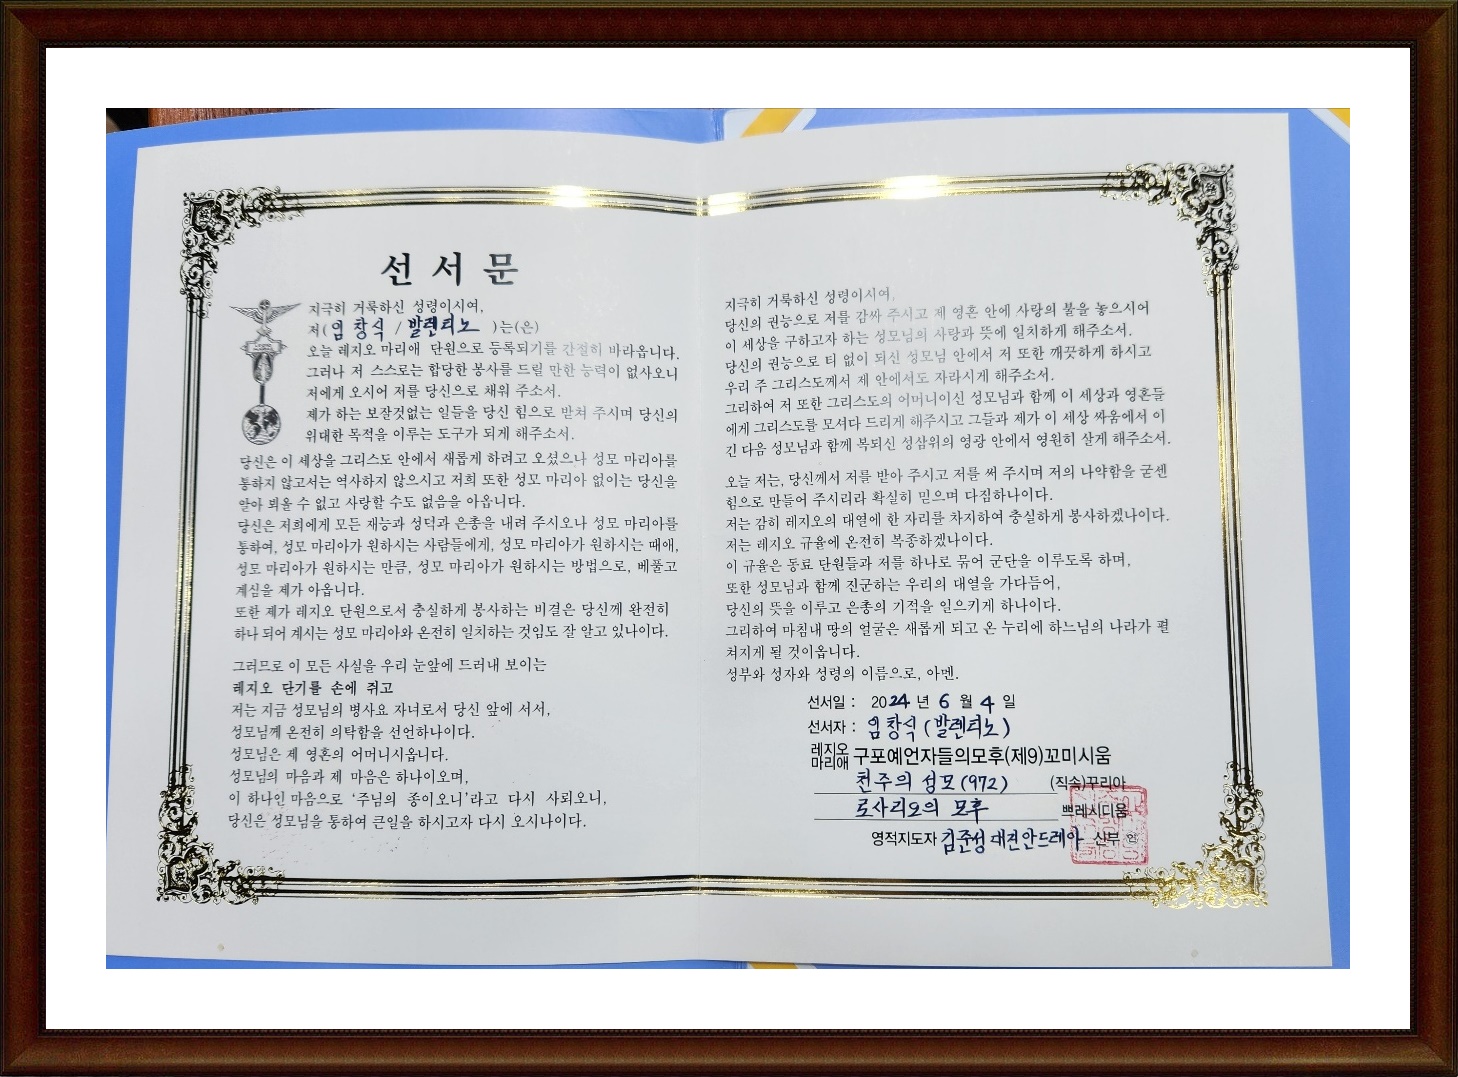 선서문
지극히 거룩하신 성령이시여,
저(임창식 / 발렌티노 )는(은)
오늘 레지오 마리애 단원으로 등록되기를 간절히 바라옵니다.
그러나 저 스스로는 합당한 봉사를 드릴 만한 능력이 없사오니
저에게 오시어 저를 당신으로 채워 주소서.
제가 하는 보잘것없는 일들을 당신 힘으로 받쳐 주시며 당신의
위대한 목적을 이루는 도구가 되게 해주소서.
당신은 이 세상을 그리스도 안에서 새롭게 하려고 오셨으나 성모 마리아를
통하지 않고서는 역사하지 않으시고 저희 또한 성모 마리아 없이는 당신을
알아 뵈올 수 없고 사랑할 수도 없음을 아옵니다.
당신은 저희에게 모든 재능과 성덕과 은총을 내려 주시오나 성모 마리아를
통하여, 성모 마리아가 원하시는 사람들에게, 성모 마리아가 원하시는 때에,
성모 마리아가 원하시는 만큼, 성모 마리아가 원하시는 방법으로, 베풀고
계심을 제가 아옵니다.
또한 제가 레지오 단원으로서 충실하게 봉사하는 비결은 당신께 완전히
하나 되어 계시는 성모 마리아와 온전히 일치하는 것임도 잘 알고 있나이다.
그러므로 이 모든 사실을 우리 눈앞에 드러내 보이는
레지오 단기를 손에 쥐고
저는 지금 성모님의 병사요 자녀로서 당신 앞에 서서,
성모님께 온전히 의탁함을 선언하나이다.
성모님은 제 영혼의 어머니시옵니다.
성모님의 마음과 제 마음은 하나이오며,
이 하나인 마음으로 '주님의 종이오니'라고 다시 사뢰오니,
당신은 성모님을 통하여 큰일을 하시고자 다시 오시나이다.
지극히 거룩하신 성령이시여,
당신의 권능으로 저를 감싸 주시고 제 영혼 안에 사랑의 불을 놓으시어
이 세상을 구하고자 하는 성모님의 사랑과 뜻에 일치하게 해주소서.
당신의 권능으로 티 없이 되신 성모님 안에서 저 또한 깨끗하게 하시고
우리 주 그리스도께서 제 안에서도 자라시게 해주소서.
그리하여 저 또한 그리스도의 어머니이신 성모님과 함께 이 세상과 영혼들
에게 그리스도를 모셔다 드리게 해주시고 그들과 제가 이 세상 싸움에서 이
긴 다음 성모님과 함께 복되신 성삼위의 영광 안에서 영원히 살게 해주소서.
오늘 저는, 당신께서 저를 받아 주시고 저를 써 주시며 저의 나약함을 굳센
힘으로 만들어 주시리라 확실히 믿으며 다짐하나이다.
저는 감히 레지오의 대열에 한 자리를 차지하여 충실하게 봉사하겠나이다.
저는 레지오 규율에 온전히 복종하겠나이다.
이 규율은 동료 단원들과 저를 하나로 묶어 군단을 이루도록 하며,
또한 성모님과 함께 진군하는 우리의 대열을 가다듬어,
당신의 뜻을 이루고 은총의 기적을 일으키게 하나이다.
그리하여 마침내 땅의 얼굴은 새롭게 되고 온 누리에 하느님의 나라가 펼
쳐지게 될 것이옵니다.
성부와 성자와 성령의 이름으로, 아멘.
선서일 : 2024 년 6 월 4 일
선서자 : 임창식 (발렌티노)
레지오 마리애 구포예언자들의모후(제9)꼬미시움
천주의 성모(972) (직속)꾸리아
로사리오의 모후 쁘레시디움
영적지도자 김준성 대건안드레아 신부 인